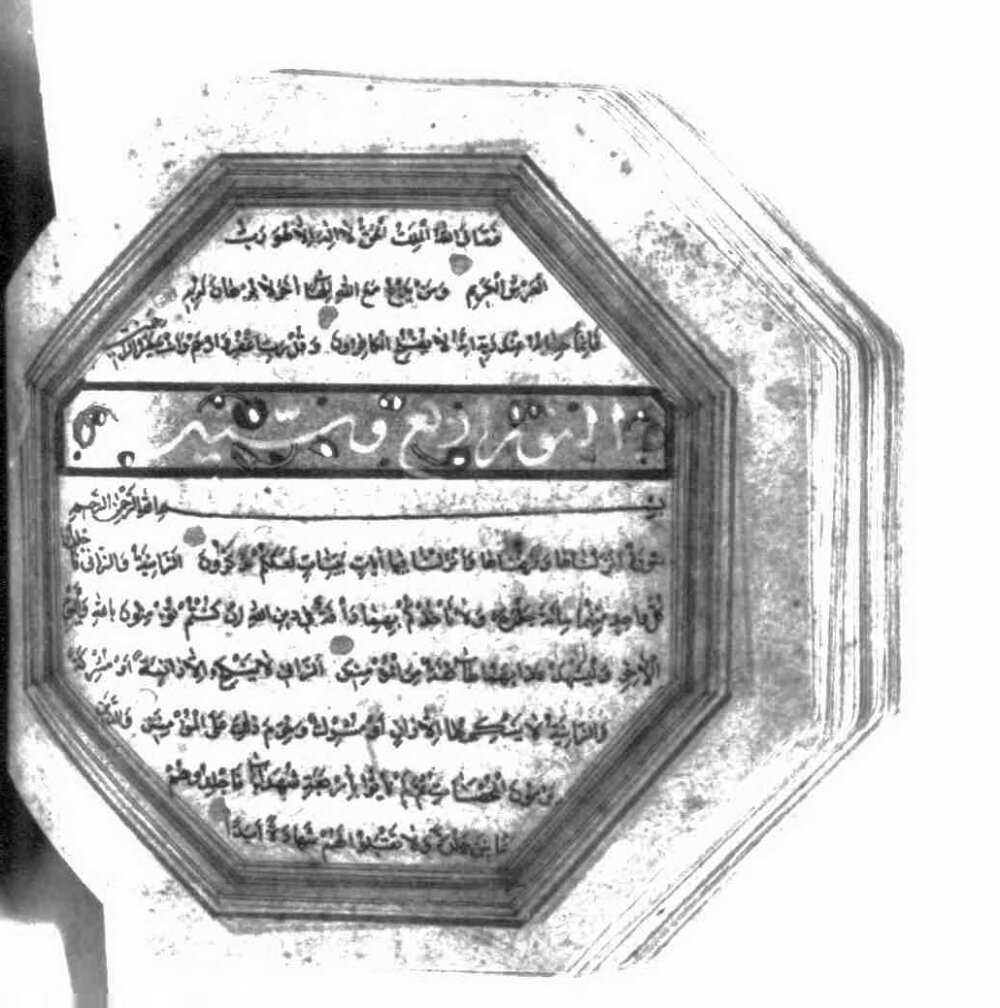 فَتَعَالَى اللهُ الْمَلِكُ الْحَقُّ لَا اِلٰهَ اِلَّا هُوَ رَبُّ
الْعَرْشِ الْكَرِيمِ وَمَنْ يَدْعُ مَعَ اللهِ اِلٰهًا اٰخَرَ لَا بُرْهَانَ لَهُ بِهِ
فَاِنَّمَا حِسَابُهُ عِنْدَ رَبِّهِ اِنَّهُ لَا يُفْلِحُ الْكَافِرُونَ وَقُلْ رَبِّ اغْفِرْ وَارْحَمْ وَاَنْتَ خَيْرُ الرَّاحِمِينَ
النور اربع وستين
بِسْمِ اللهِ الرَّحْمٰنِ الرَّحِيمِ
سُورَةٌ اَنْزَلْنَاهَا وَفَرَضْنَاهَا وَاَنْزَلْنَا فِيهَا اٰيَاتٍ بَيِّنَاتٍ لَعَلَّكُمْ تَذَكَّرُونَ اَلزَّانِيَةُ وَالزَّانِي فَاجْلِدُوا
كُلَّ وَاحِدٍ مِنْهُمَا مِائَةَ جَلْدَةٍ وَلَا تَأْخُذْكُمْ بِهِمَا رَأْفَةٌ فِي دِينِ اللهِ اِنْ كُنْتُمْ تُؤْمِنُونَ بِاللهِ وَالْيَوْمِ
الْاٰخِرِ وَلْيَشْهَدْ عَذَابَهُمَا طَائِفَةٌ مِنَ الْمُؤْمِنِينَ اَلزَّانِي لَا يَنْكِحُ اِلَّا زَانِيَةً اَوْ مُشْرِكَةً
وَالزَّانِيَةُ لَا يَنْكِحُهَا اِلَّا زَانٍ اَوْ مُشْرِكٌ وَحُرِّمَ ذٰلِكَ عَلَى الْمُؤْمِنِينَ وَالَّذِينَ
يَرْمُونَ الْمُحْصَنَاتِ ثُمَّ لَمْ يَأْتُوا بِاَرْبَعَةِ شُهَدَاءَ فَاجْلِدُوهُمْ
ثَمَانِينَ جَلْدَةً وَلَا تَقْبَلُوا لَهُمْ شَهَادَةً اَبَدًا